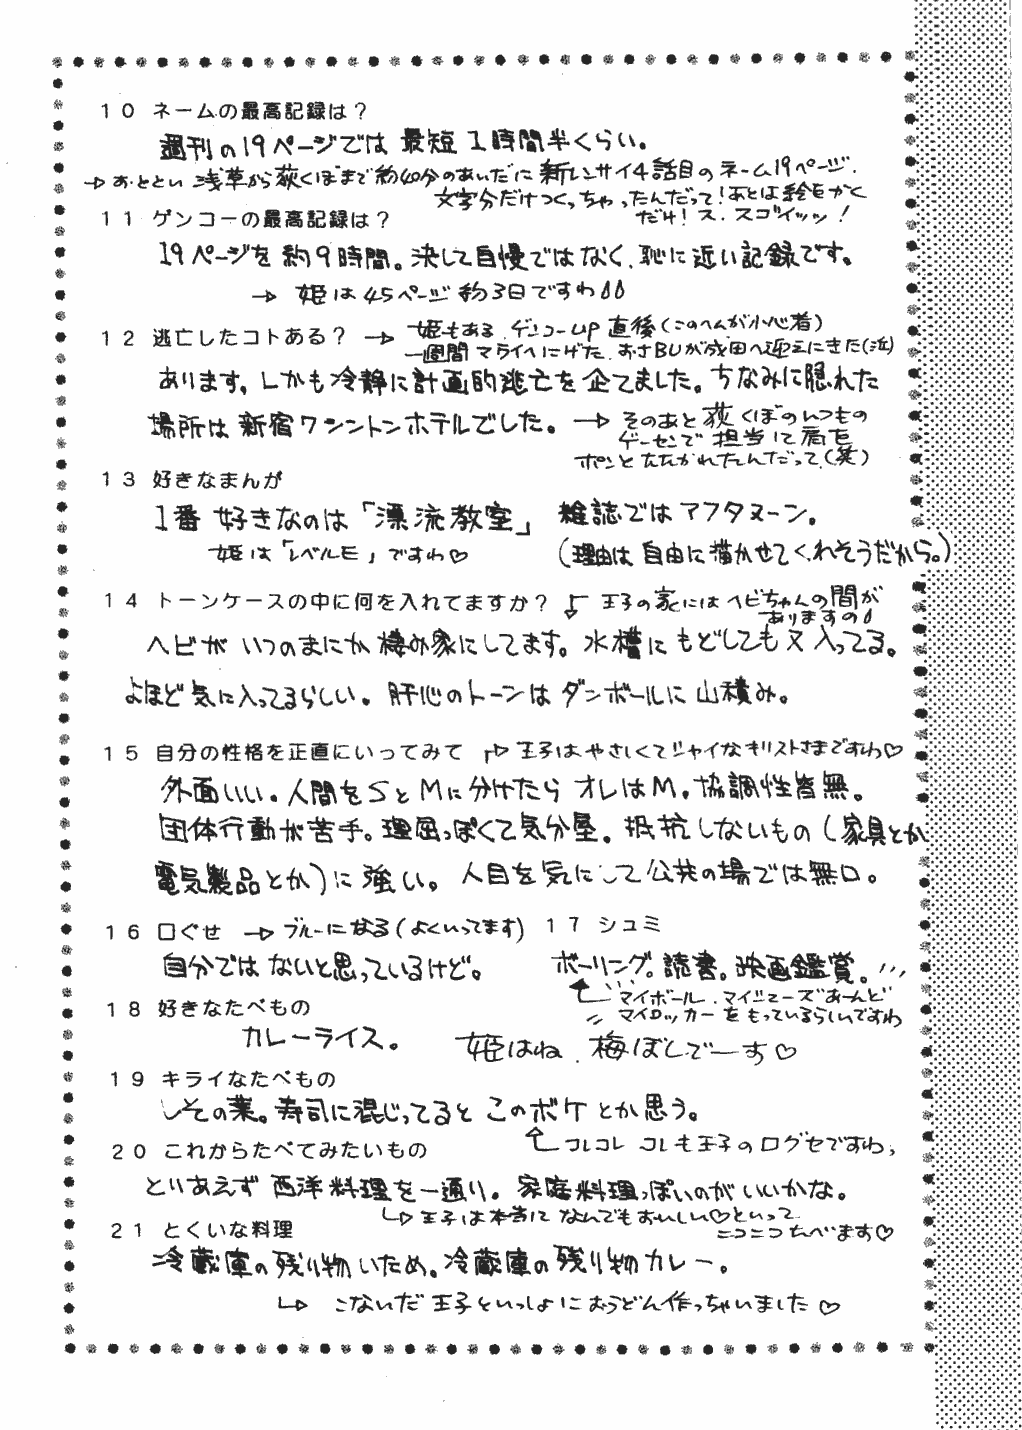 10 ネームの最高記録は？
週刊の19ページでは 最短 1時間半くらい。
→ おととい 浅草から荻くぼまで約40分のあいだに 新レンサイ4話目のネーム19ページ.
文字分だけつくっちゃったんだって！あとは絵をかく
だけ！ス、スゴイッッ！
11 ゲンコーの最高記録は？
19ページを 約9時間。決して自慢ではなく、恥に近い記録です。
→ 姫は45ページ 約3日ですわ
12 逃亡したコトある？ → 姫もある. ゲンコーup 直後（このへんが小心者）
一週間 マライへにげた. おさBUが成田へ迎えにきた（泣）
あります。しかも冷静に計画的逃亡を企てました。ちなみに隠れた
場所は 新宿ワシントンホテルでした。 → そのあと 荻くぼのいつもの
ゲーセンで 担当に肩を
ポンと たたかれたんだって（笑）
13 好きなまんが
1番 好きなのは「漂流教室」 雑誌ではアフタヌーン。
姫は「レベルE」ですわ♡ （理由は 自由に描かせてくれそうだから。）
14 トーンケースの中に何を入れてますか？ 王子の家にはヘビちゃんの間が
ありますの
ヘビが いつのまにか 棲み家にしてます。水槽に もどしても 又 入ってる。
よほど 気に入ってるらしい。肝心のトーンは ダンボールに 山積み。
15 自分の性格を正直にいってみて → 王子は やさしくてシャイなキリストさまですわ♡
外面いい。人間を SとMに 分けたら オレはM。協調性皆無。
団体行動が苦手。理屈っぽくて気分屋。抵抗しないもの（家具とか
電気製品とか）に 強い。人目を気にして公共の場では無口。
16 口ぐせ → ブルーになる（よくいってます） 17 シュミ
自分では ないと思っているけど。 ボーリング。読書。映画鑑賞。
マイボール. マイシューズあーんど
18 好きなたべもの マイロッカーをもっているらしいですわ
カレーライス。 姫はね. 梅ぼしでーす♡
19 キライなたべもの
しその葉。寿司に混じってると このボケ とか思う。
20 これからたべてみたいもの コレコレ コレも王子のログセですわ
とりあえず 西洋料理を一通り。家庭料理っぽいのがいいかな。
→ 王子は本当に なんでもおいしい♡といって
21 とくいな料理 ニコニコたべます♡
冷蔵庫の残り物いため。冷蔵庫の残り物カレー。
→ こないだ 王子といっしょに おうどん作っちゃいました♡